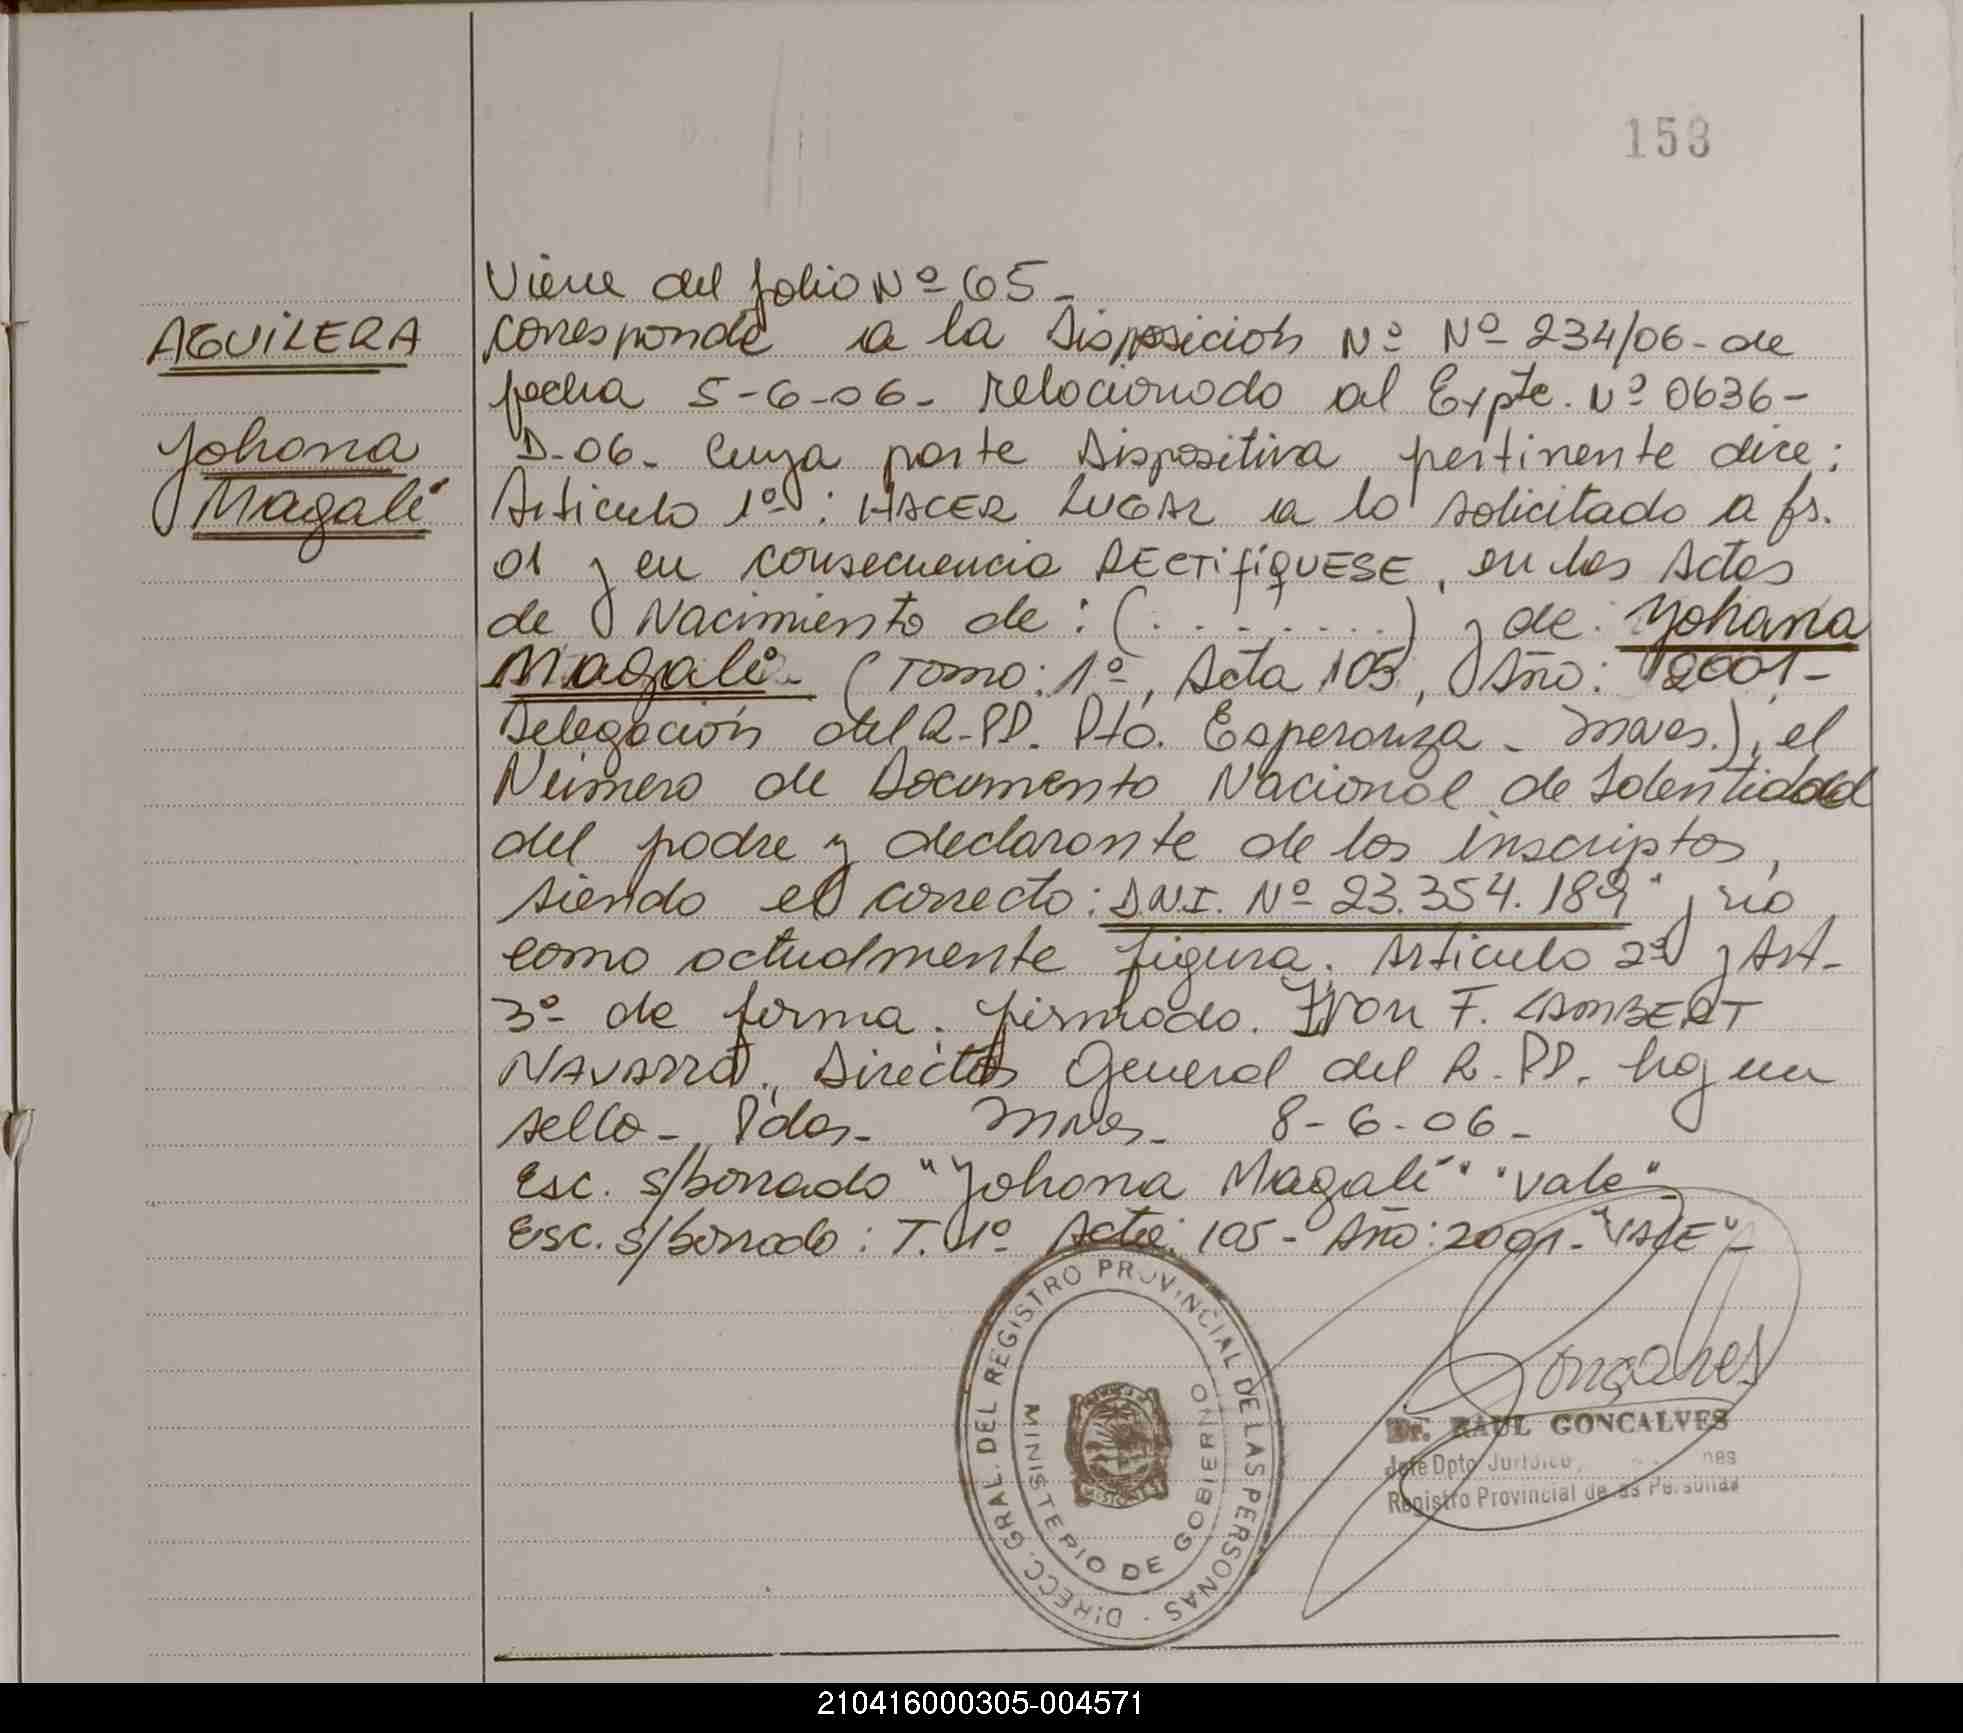 153
Viene del folio Nº 65-
AGUILERA
Yohana
Magalí
corresponde a la Disposición Nº Nº 234/06- de
fecha 5-6-06- relacionado al Expte. Nº 0636-
D-06- Cuya parte Dispositiva pertinente dice:
Articulo 1º: HACER LUGAR a lo solicitado a fs.
01 y en consecuencia RECTIFÍQUESE, en las Actas
de Nacimiento de: (. . . . . . . .) y de: Yohana
Magalí- (Tomo: 1º, Acta 105, Año: 2001-
Delegación del R.PP. Pto. Esperanza - Mnes.), el
Número de Documento Nacional de Identidad
del padre y declarante de los inscriptos,
siendo el correcto: D.N.I. Nº 23.354.189" y no
como actualmente figura. Articulo 2º y Art-
3º de forma. firmado. Ivon F. LAMBERT
NAVARRO, Director General del R.PP. hay un
sello-, Pdas- Mnes- 8-6-06-
Esc. s/borrado "Yohana Magalí" "vale"-
Esc. s/borrado: T. 1º Acta: 105- Año: 2001- "VALE"-
DIRECC. GRAL. DEL REGISTRO PROVINCIAL DE LAS PERSONAS
MINISTERIO DE GOBIERNO
MISIONES
Goncalves
Dr. RAUL GONCALVES
Jefe Dpto Jurídico
Registro Provincial de las Personas
210416000305-004571